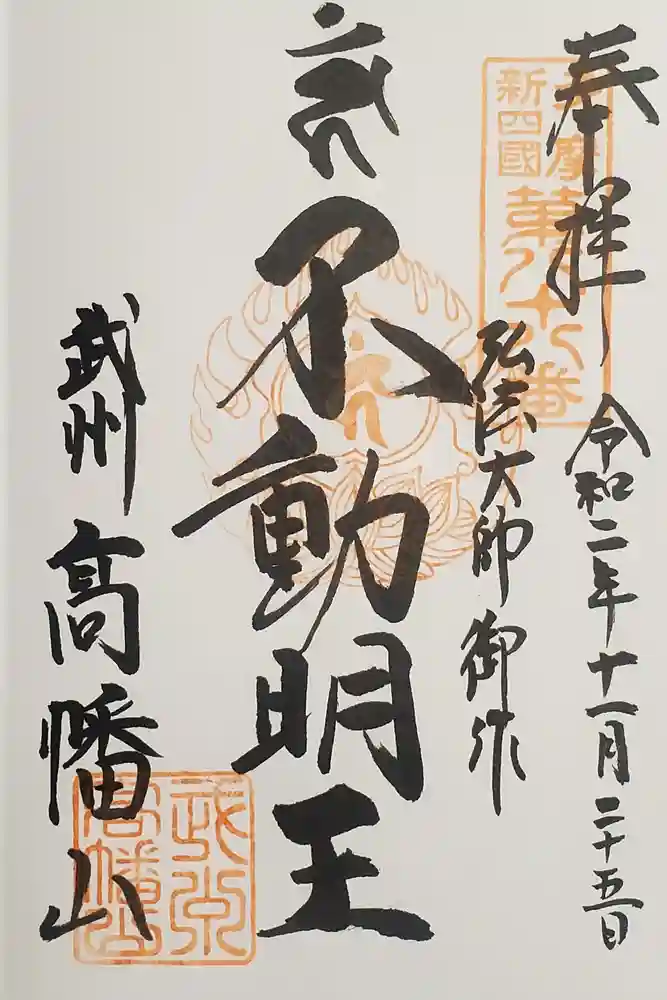 奉拝
令和二年十一月二十五日
弘法大師御作
不動明王
武州 高幡山
多摩
新四國
第八十八番
武州
高幡山